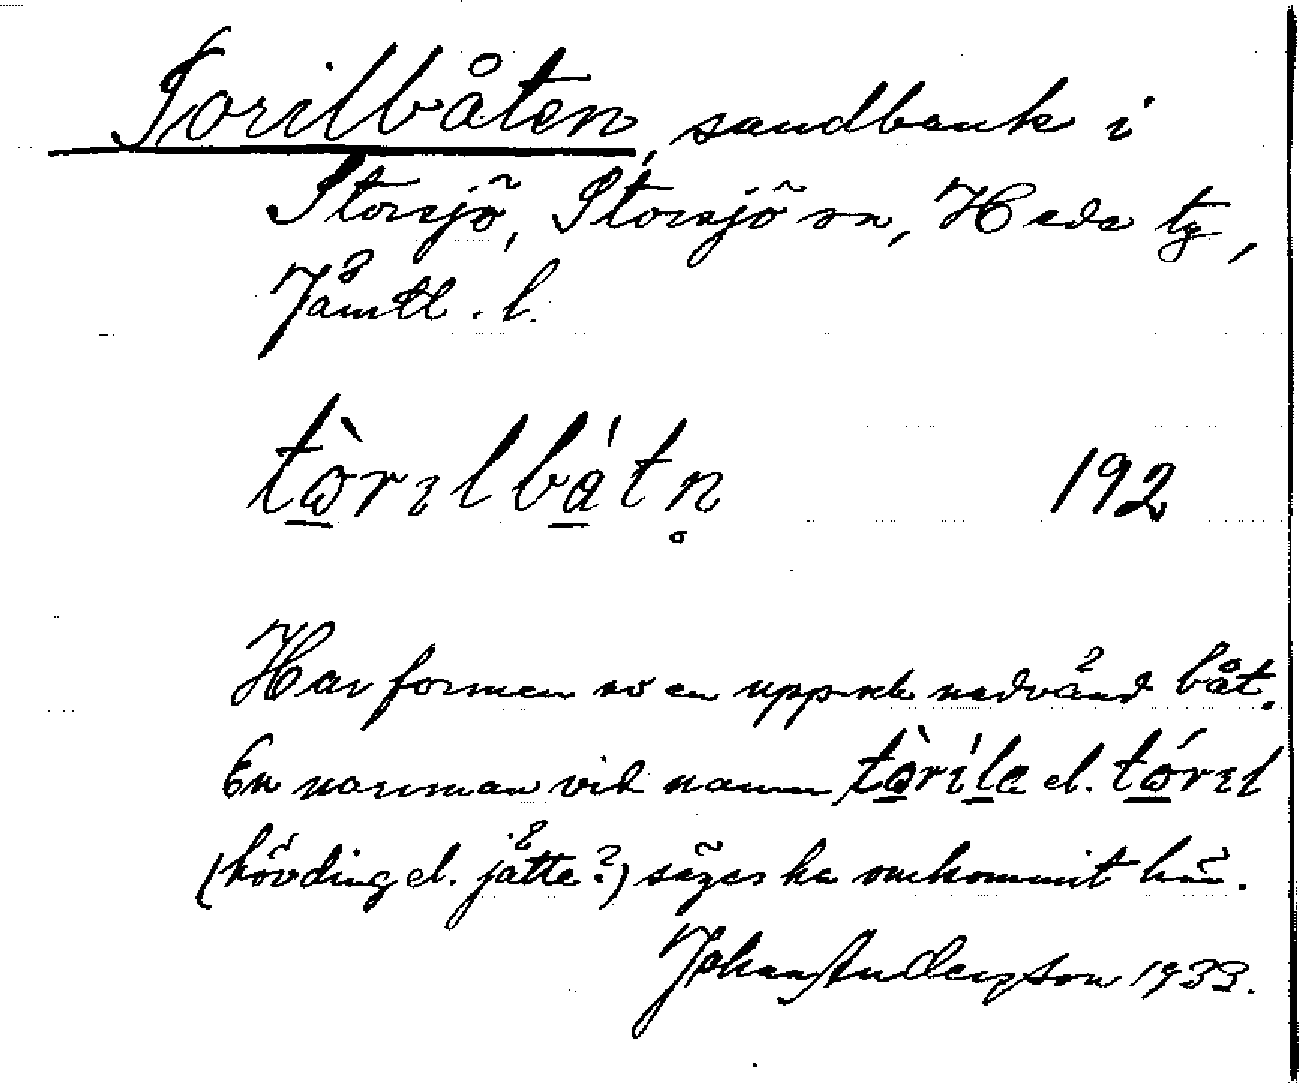 Torilbåten, sandbank i
Storsjö, Storsjö sn, Hede tg,
Jämtl. l.
tòrɪlbátn̥ 192
Har formen av en uppochnedvänd båt.
En norrman vid namn tòrílɐ el. tórɪl
(hövding el. jätte?) säges ha omkommit här.
Johan Anderson 1933.